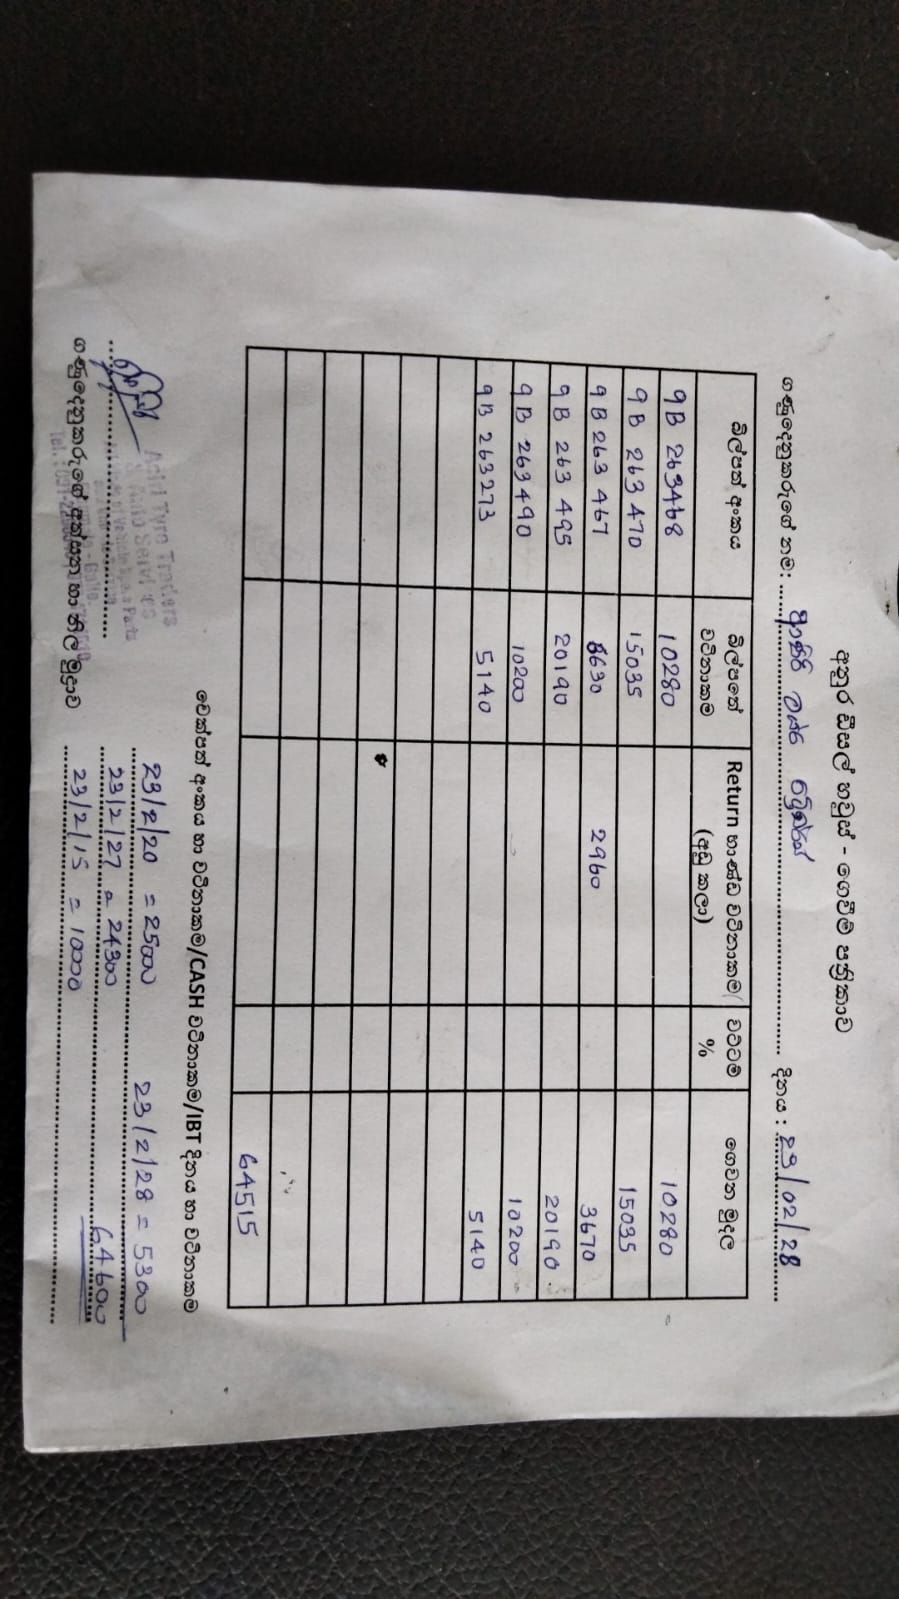 අනුර ඩීසල් හවුස් - ගෙවීම් පත්‍රිකාව
ගණුදෙනුකරුගේ නම: ටයර් දිනය : 23/02/28
බිල්පත් අංකය බිල්පතේ වටිනාකම Return භාණ්ඩ වටිනාකම (අඩු කලා) වට්ටම් % ගෙවන මුදල
9B 263468 10280 10280
9B 263470 15035 15035
9B 263467 8630 2960 3670
9B 263 495 20190 20190
9B 263490 10200 10200
9B 263273 5140 5140
64515
චෙක්පත් අංකය හා වටිනාකම/CASH වටිනාකම/IBT දිනය හා වටිනාකම
23/2/20 = 25000 23/2/28 = 5300
23/2/27 = 24300 64600
23/2/15 = 10000
Tyre Traders
ගණුදෙනුකරුගේ අත්සන හා නිල මුද්‍රාව